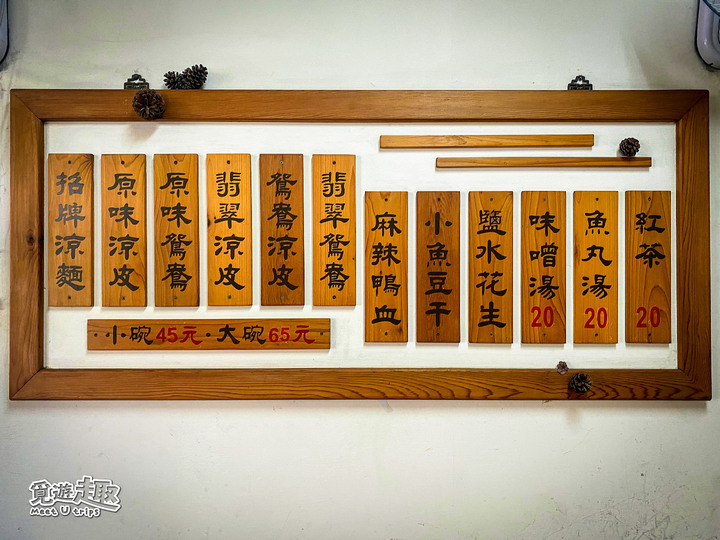 招牌涼麵
原味涼皮
原味鴛鴦
翡翠涼皮
鴛鴦涼皮
翡翠鴛鴦
小碗45元·大碗65元
麻辣鴨血
小魚豆干
鹽水花生
味噌湯20
魚丸湯20
紅茶20
覓遊趣
Meet U trips